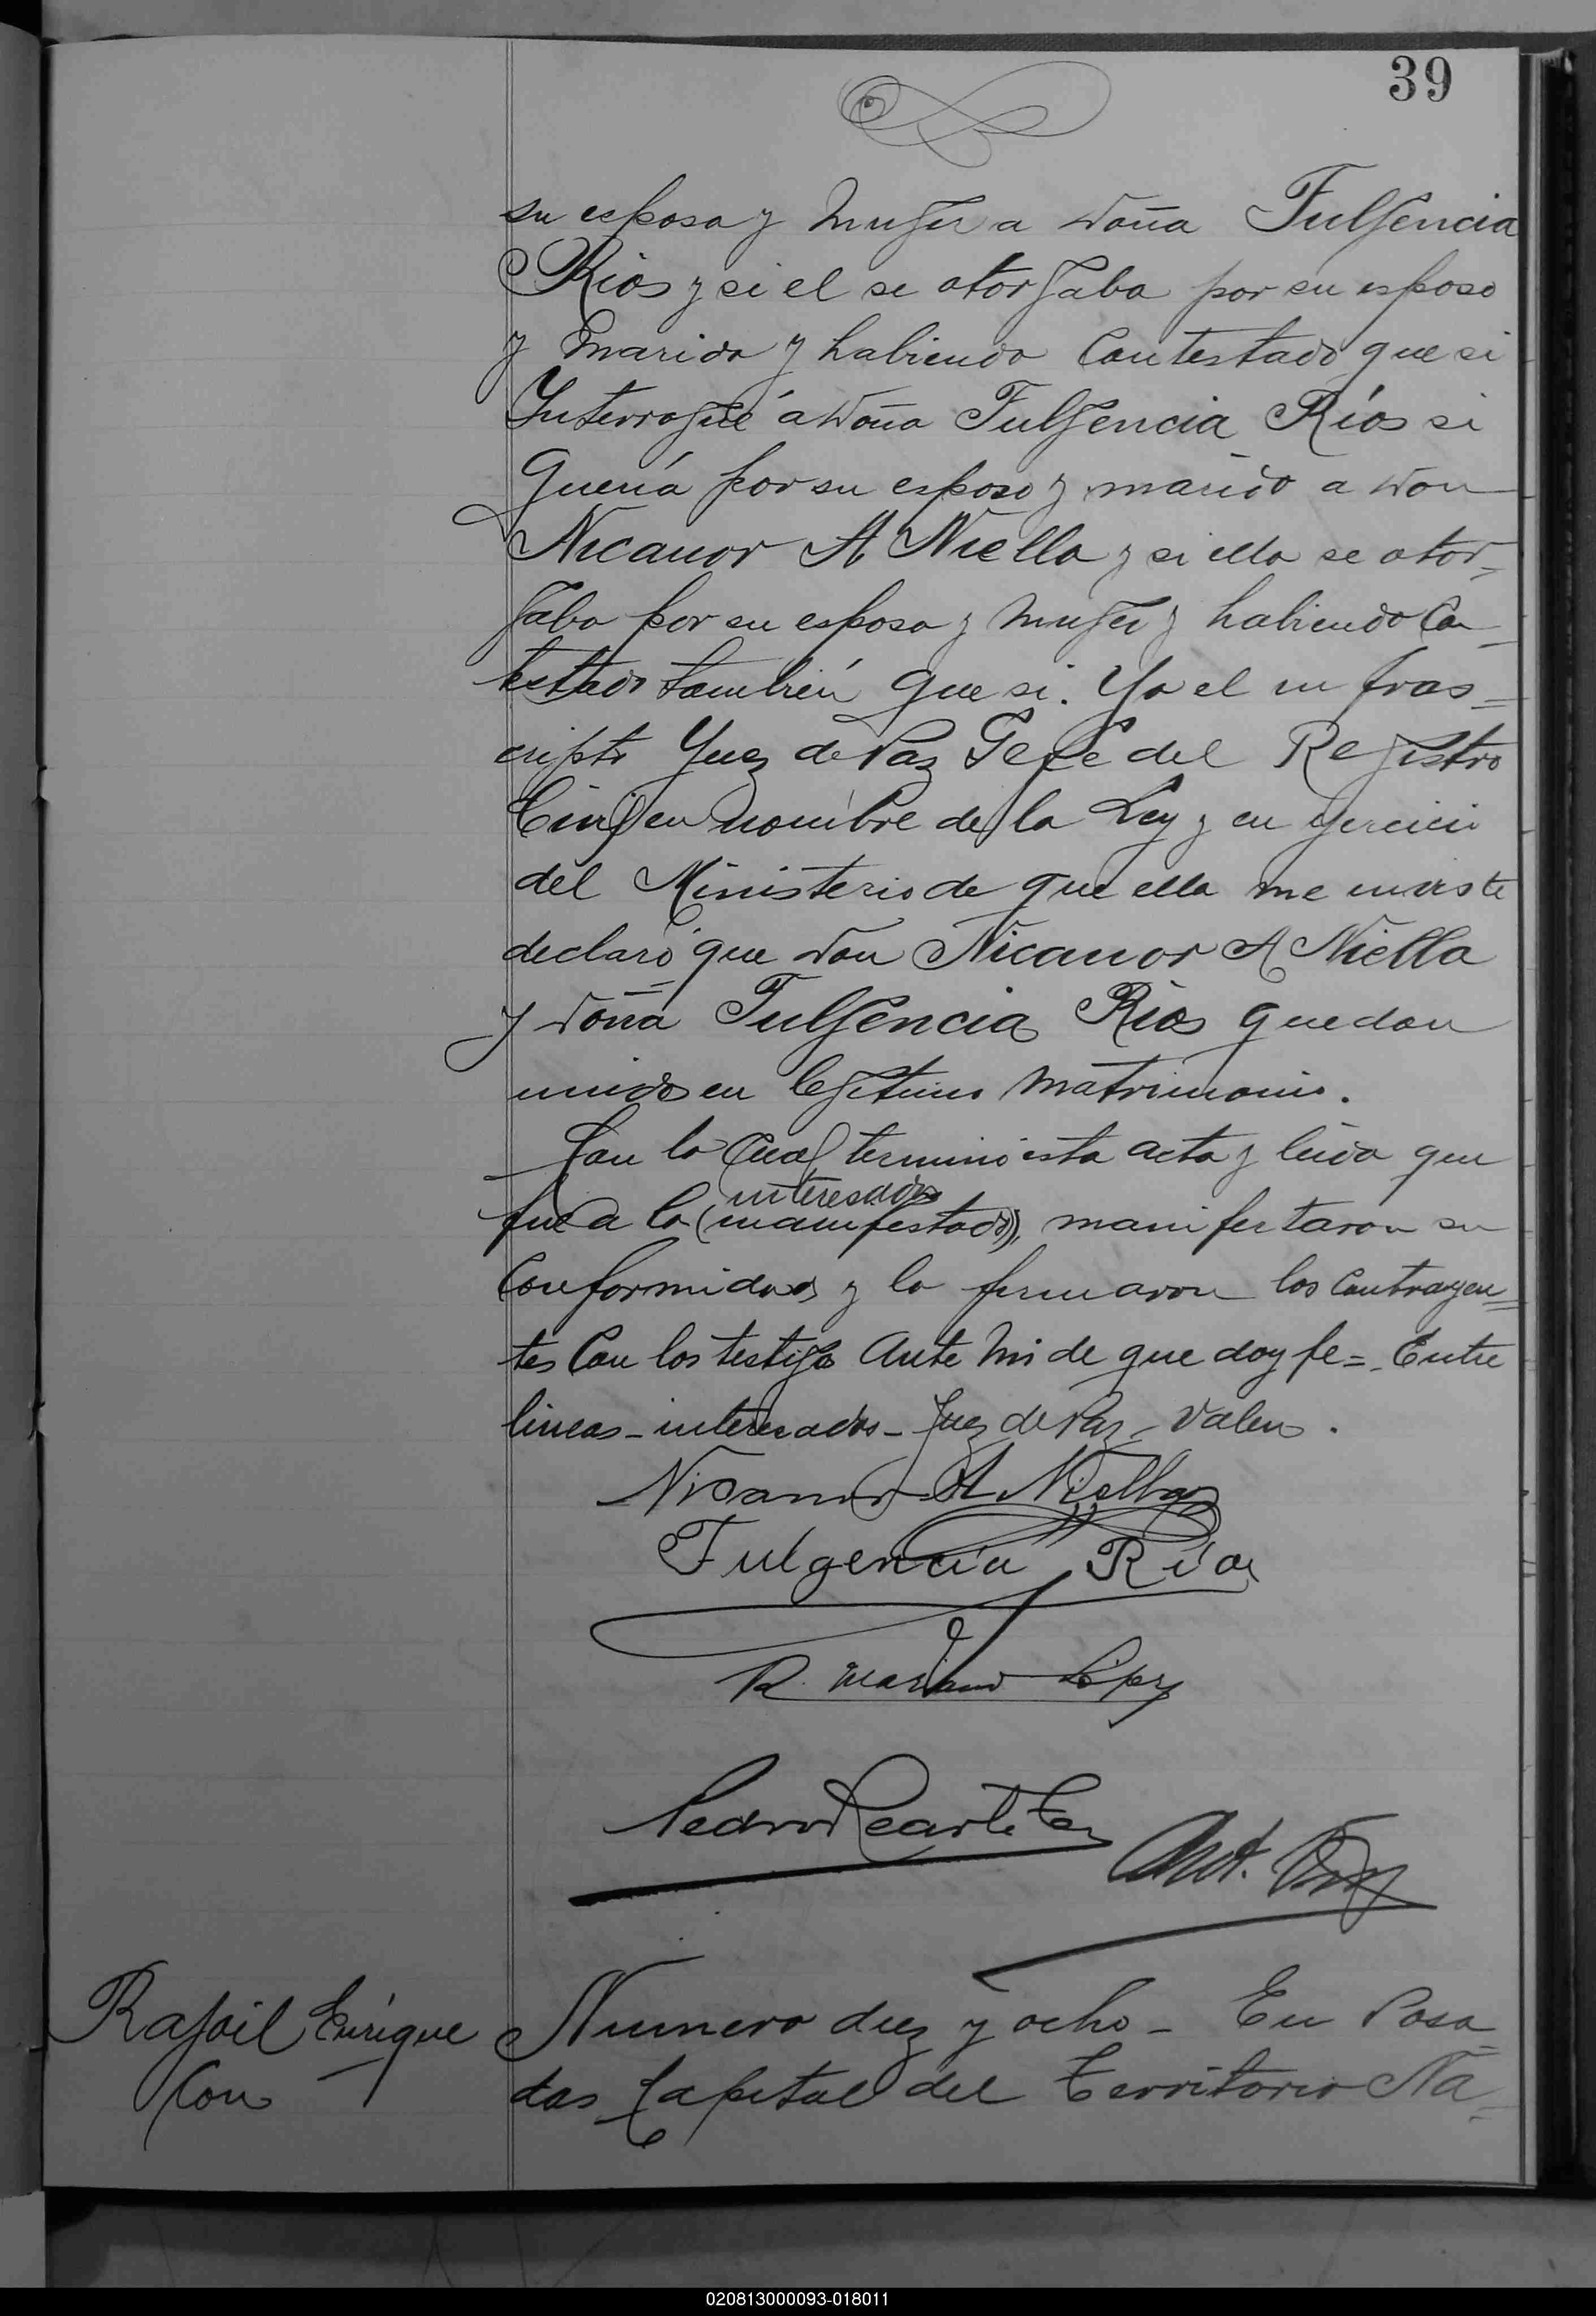 39
su esposa y muger a Doña Fulgencia
Rios y si el se otorgaba por su esposo
y marido y habiendo contestado que si
Interrogué a Doña Fulgencia Ríos si
queria por su esposo y marido a Don
Nicanor A Niella y si ella se otor=
gaba por su esposa y muger y habiendo con
testado también que si. Yo el infras=
cripto Juez de Paz Gefe del Registro
Civil en nombre de la Ley y en ejercicio
del Ministerio de que ella me inviste
declaró que Don Nicanor A Niella
y Doña Fulgencia Rios quedan
unidos en legitimo matrimonio.
Con lo cual terminó esta acta y leida que
interesados
fue a lo (manifestado), manifestaron su
conformidad y la firmaron los contrayen=
tes con los testigos ante mi de que doy fe=. Entre
lineas - interesados - Juez de Paz - valen.
Nicanor A Niella
Fulgencia Rios
R. Mariano López
Pedro
Ant.
Rafael Enrique
Con
Numero diez y ocho - En Posa=
das Capital del Territorio Na=
020813000093-018011